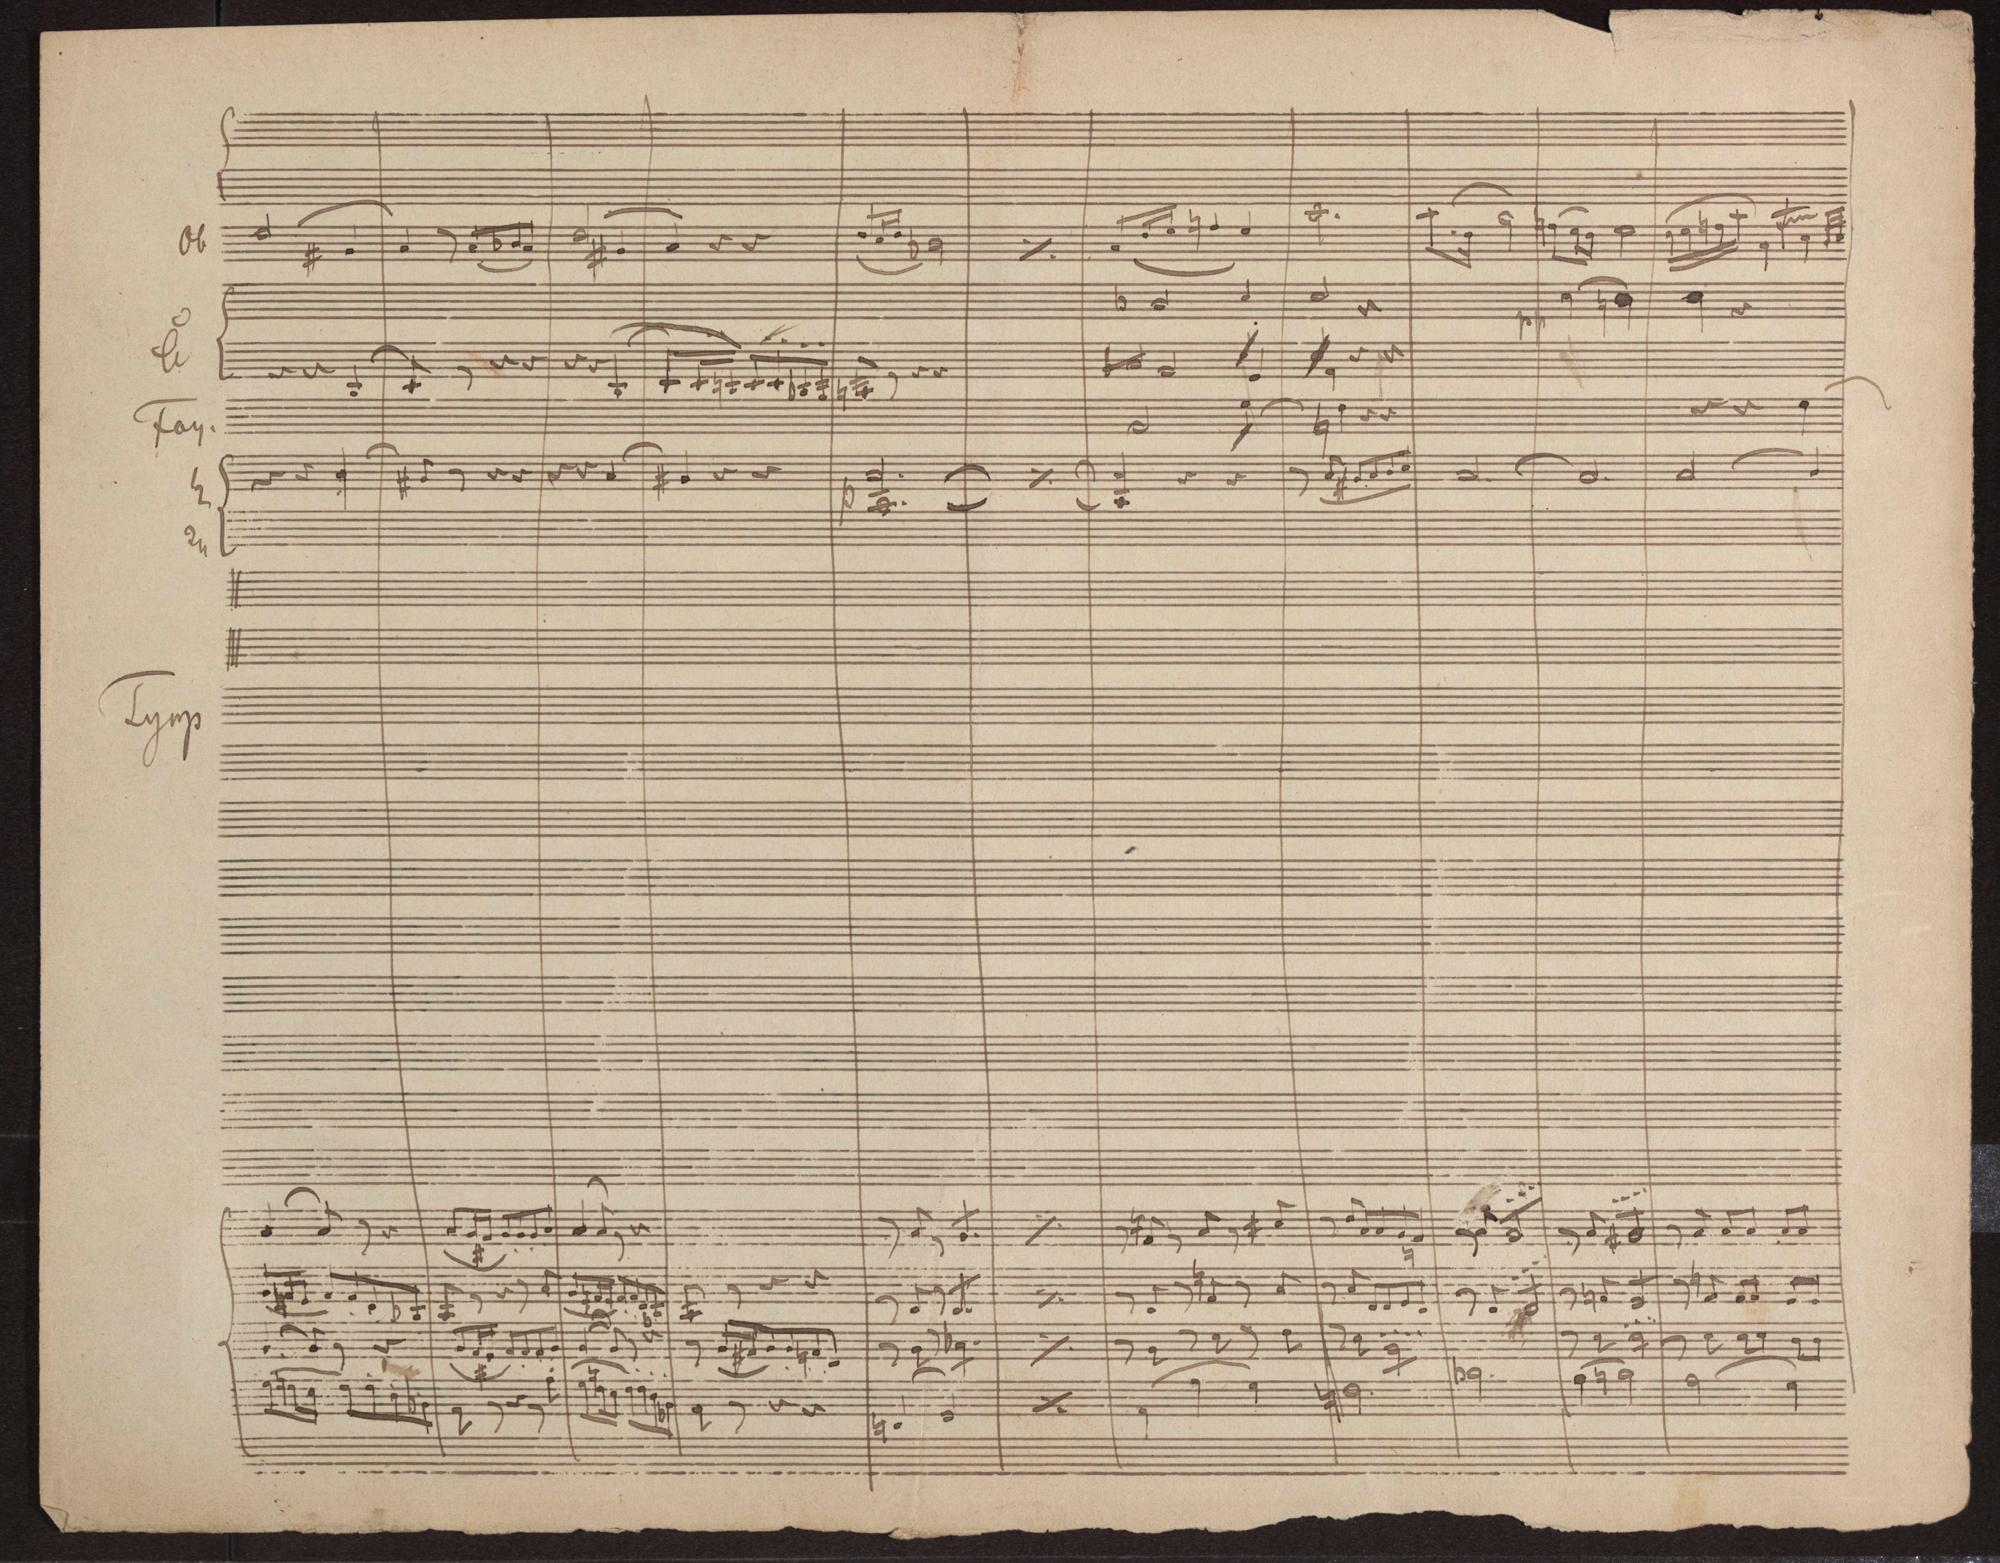 Ob
Cl
Fag.
p
pp
Tymp